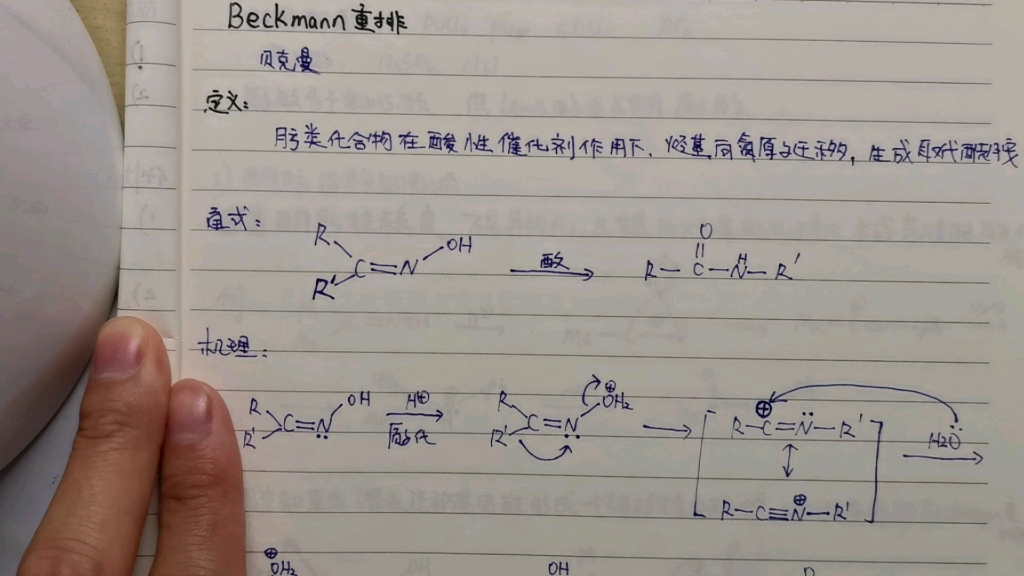 Beckmann 重排
贝克曼
定义:
肟类化合物在酸性催化剂作用下,烃基向氮原子迁移,生成取代酰胺
通式:
R R' C=N OH 酸 R-C(=O)-NH-R'
机理:
R R' C=N̈ OH H⊕ 质子化 R R' C=N̈ ⊕OH₂ R-C⊕=N̈-R' H₂Ö
R-C≡N⊕-R'
⊕OH₂ OH